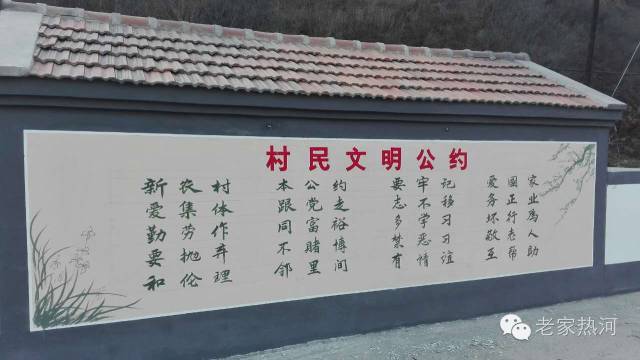 村民文明公约
新农村 本公约 要牢记 爱国家
爱集体 跟党走 志不移 务正业
勤劳作 同富裕 多学习 坏行為
要抛弃 不赌博 禁恶习 敬老人
和伦理 邻里间 有情谊 互帮助
老家热河